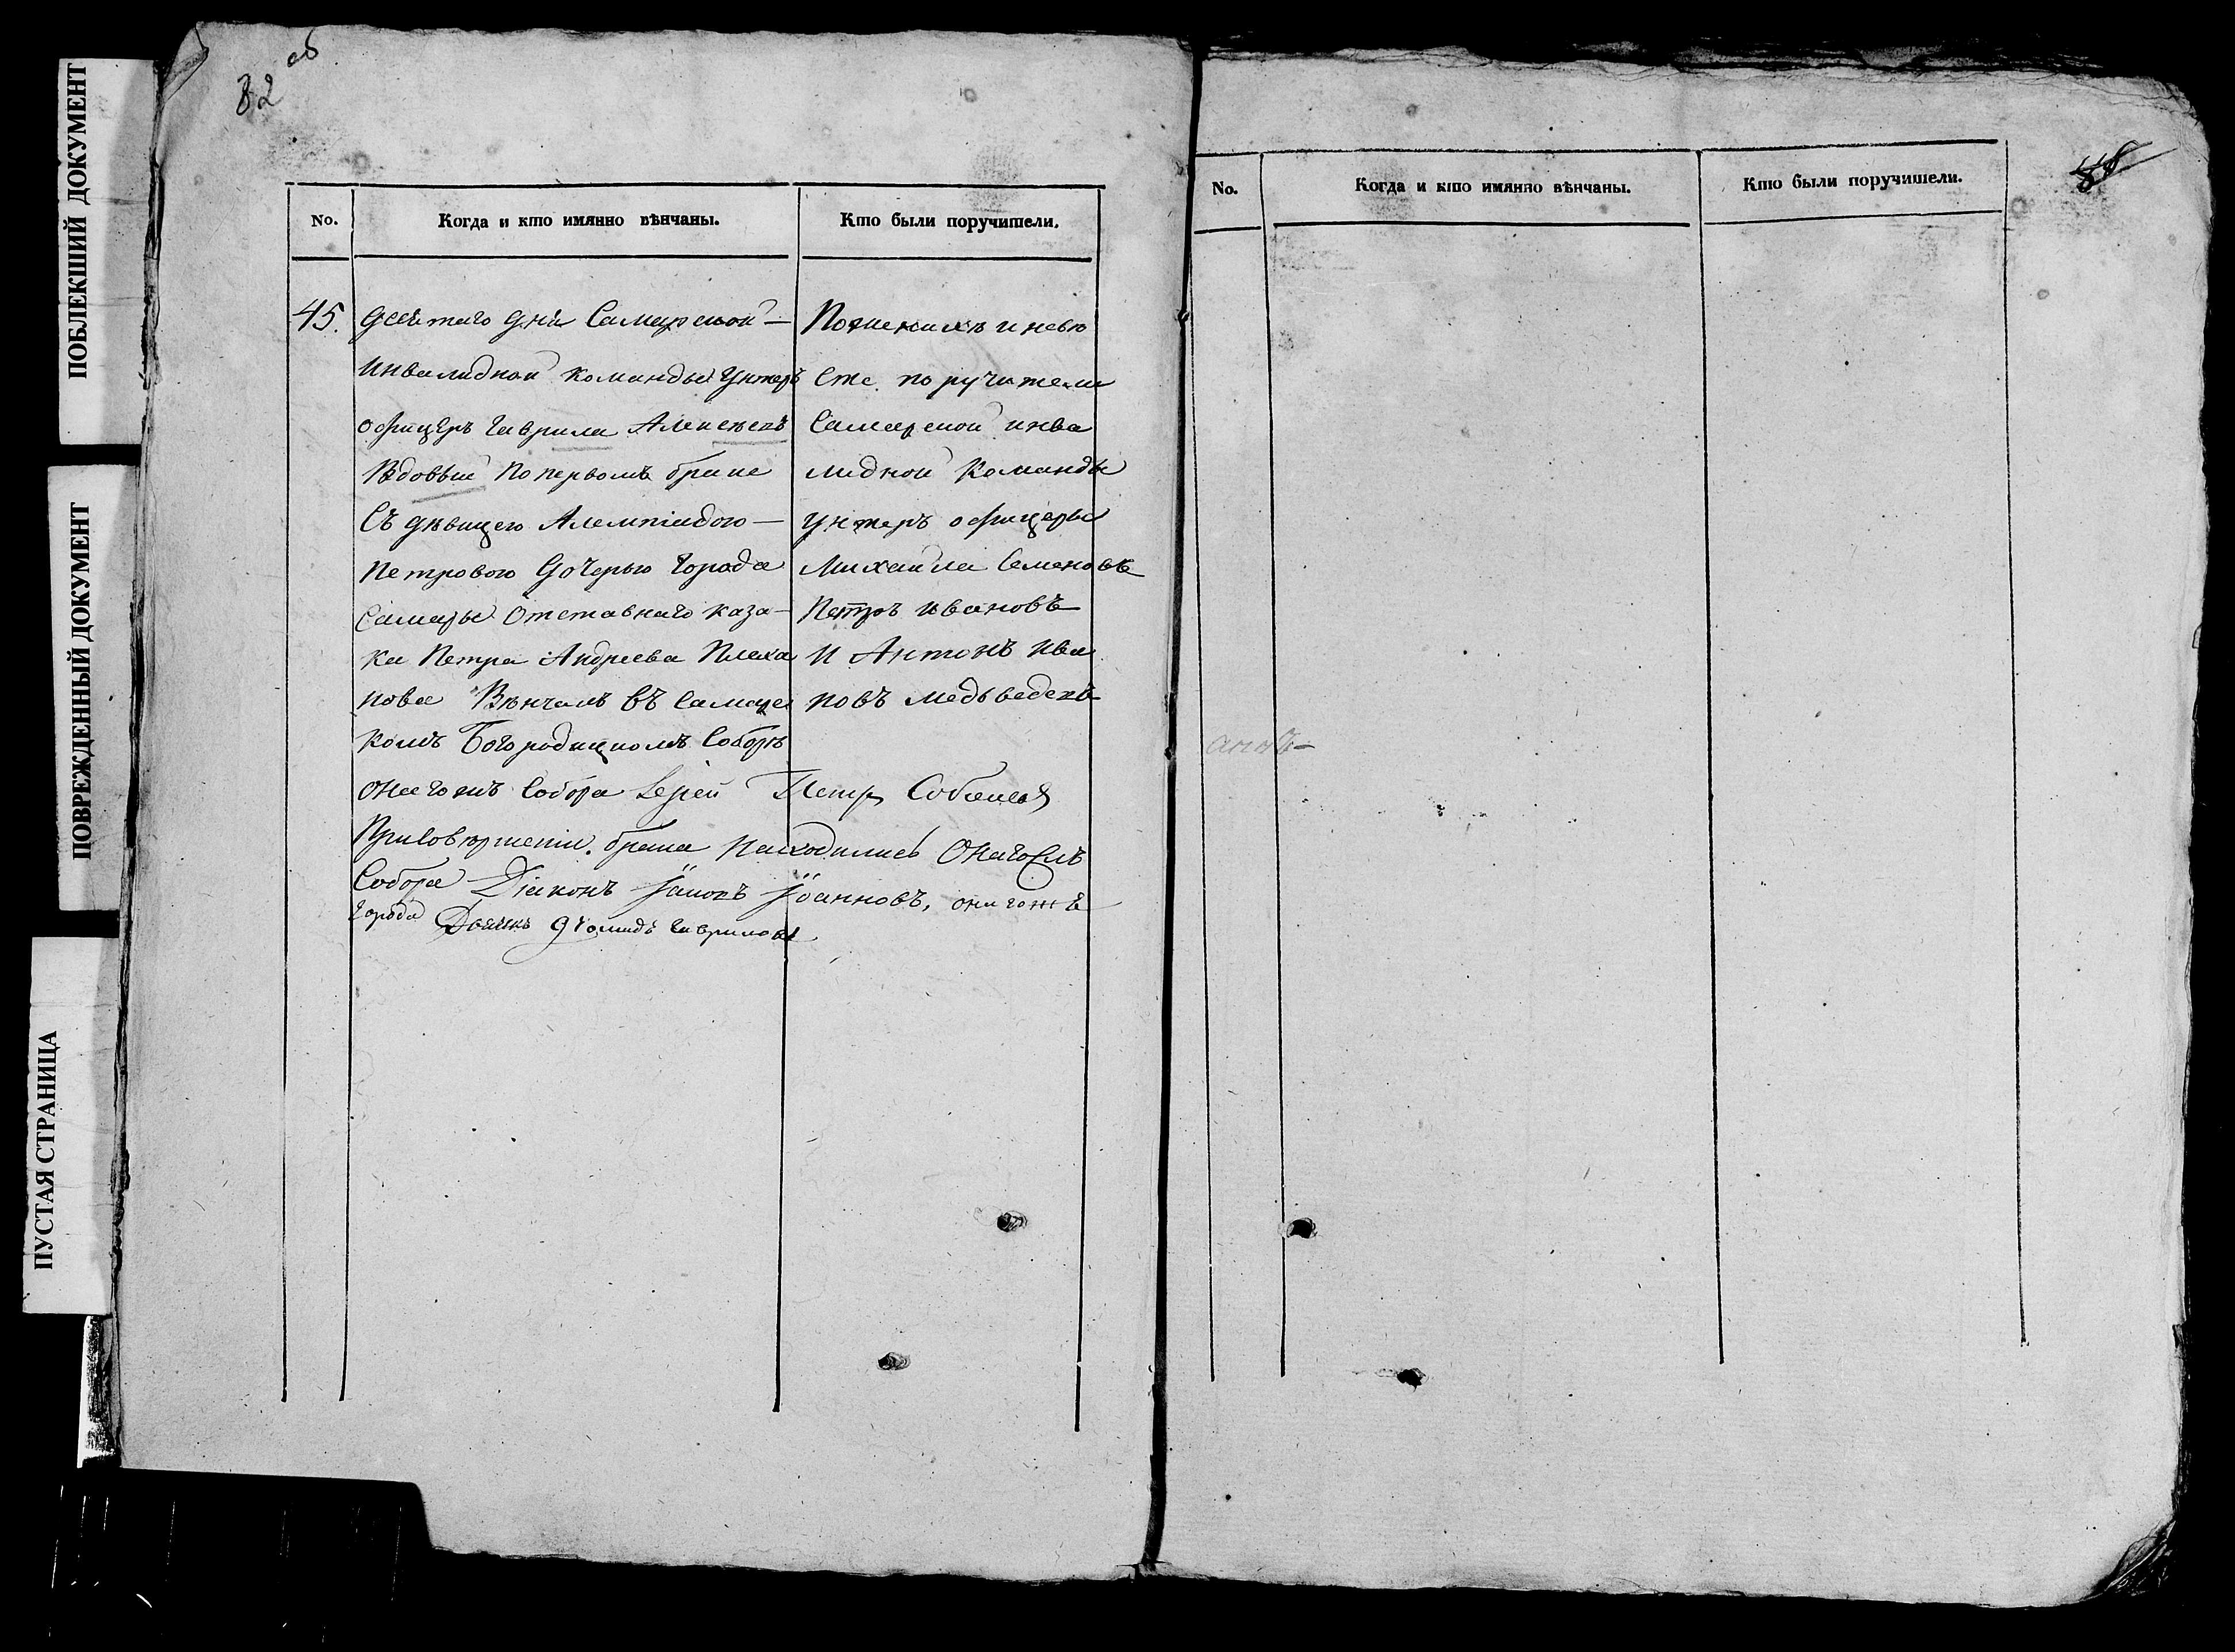 ПОБЛЕКШИЙ ДОКУМЕНТ
ПОВРЕЖДЕННЫЙ ДОКУМЕНТ
ПУСТАЯ СТРАНИЦА
82 об
No.
Когда и кто имянно вѣнчаны.
Кто были поручители.
45.
десятаго дня Самарской —
инвалидной команды унтеръ
офицеръ Гаврила Алексеевъ
Вдовый по первомъ браке
Съ дѣвицею Алемпіадою —
Петровою дочерью города
Самары Отставнаго каза-
ка Петра Андреева Плеха
нова Вѣнчалъ въ Самарс
комъ Богородицкомъ Соборѣ
онагожъ Собора Іерей Петр
При Совѣршеніи брака находились Онагожъ
Собора Діаконъ Іаковъ Іоанновъ, онагожъ
города Дьячкъ Діомидъ Гавриловъ
По женихѣ и невѣ
сте поручители
Самарской инва
лидной Команды
унтеръ офицеры
Михайла Семеновъ
Петръ Ивановъ
и Антонъ Ива
новъ Медьведевъ
No.
Когда и кто имянно вѣнчаны.
Кто были поручители.